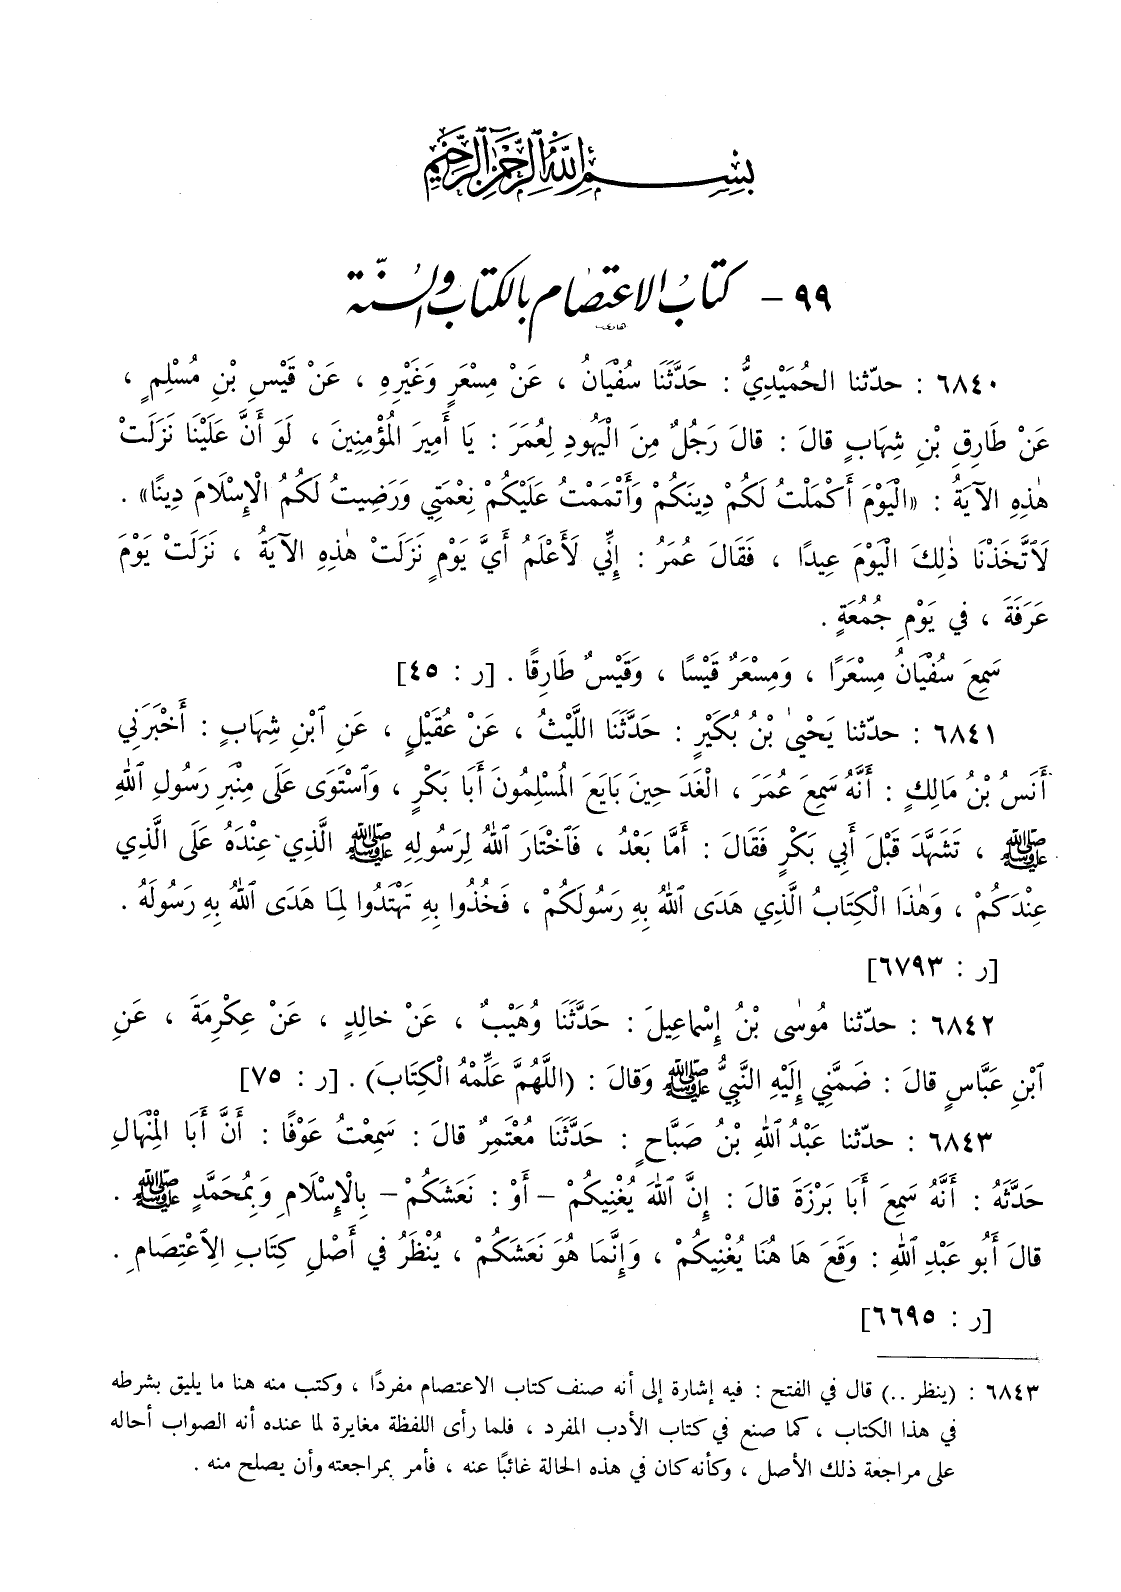 بِسْمِ ٱللَّٰهِ ٱلرَّحْمَٰنِ ٱلرَّحِيمِ
٩٩ - كتابُ الاعتصام بالكتاب والسنّة
٦٨٤٠ : حدّثنا الحُمَيْدِيُّ : حَدَّثَنَا سُفْيَانُ ، عَنْ مِسْعَرٍ وَغَيْرِهِ ، عَنْ قَيْسِ بْنِ مُسْلِمٍ ،
عَنْ طَارِقِ بْنِ شِهَابٍ قالَ : قالَ رَجُلٌ مِنَ الْيَهُودِ لِعُمَرَ : يَا أَمِيرَ المُؤْمِنِينَ ، لَوْ أَنَّ عَلَيْنَا نَزَلَتْ
هٰذِهِ الآيَةُ : «الْيَوْمَ أَكْمَلْتُ لَكُمْ دِينَكُمْ وَأَتْمَمْتُ عَلَيْكُمْ نِعْمَتِي وَرَضِيتُ لَكُمُ الْإِسْلَامَ دِينًا» .
لَاتَّخَذْنَا ذٰلِكَ الْيَوْمَ عِيدًا ، فَقَالَ عُمَرُ : إِنِّي لَأَعْلَمُ أَيَّ يَوْمٍ نَزَلَتْ هٰذِهِ الآيَةُ ، نَزَلَتْ يَوْمَ
عَرَفَةَ ، في يَوْمِ جُمُعَةٍ .
سَمِعَ سُفْيَانُ مِسْعَرًا ، وَمِسْعَرٌ قَيْسًا ، وَقَيْسٌ طَارِقًا . [ر : ٤٥]
٦٨٤١ : حدّثنا يَحْيىٰ بْنُ بُكَيْرٍ : حَدَّثَنَا اللَّيْثُ ، عَنْ عُقَيْلٍ ، عَنِ ٱبْنِ شِهَابٍ : أَخْبَرَنِي
أَنَسُ بْنُ مَالِكٍ : أَنَّهُ سَمِعَ عُمَرَ ، الْغَدَ حِينَ بَايَعَ المُسْلِمُونَ أَبَا بَكْرٍ ، وَٱسْتَوَى عَلَى مِنْبَرِ رَسُولِ ٱللهِ
ﷺ ، تَشَهَّدَ قَبْلَ أَبِي بَكْرٍ فَقَالَ : أَمَّا بَعْدُ ، فَٱخْتَارَ ٱللهُ لِرَسُولِهِ ﷺ الَّذِي عِنْدَهُ عَلَى الَّذِي
عِنْدَكُمْ ، وَهٰذَا الْكِتَابُ الَّذِي هَدَى ٱللهُ بِهِ رَسُولَكُمْ ، فَخُذُوا بِهِ تَهْتَدُوا لِمَا هَدَى ٱللهُ بِهِ رَسُولَهُ .
[ر : ٦٧٩٣]
٦٨٤٢ : حدّثنا مُوسٰى بْنُ إِسْماعِيلَ : حَدَّثَنَا وُهَيْبٌ ، عَنْ خالِدٍ ، عَنْ عِكْرِمَةَ ، عَنِ
ٱبْنِ عَبَّاسٍ قالَ : ضَمَّنِي إِلَيْهِ النَّبِيُّ ﷺ وَقالَ : (اللَّهُمَّ عَلِّمْهُ الْكِتَابَ) . [ر : ٧٥]
٦٨٤٣ : حدّثنا عَبْدُ ٱللهِ بْنُ صَبَّاحٍ : حَدَّثَنَا مُعْتَمِرٌ قالَ : سَمِعْتُ عَوْفًا : أَنَّ أَبَا الْمِنْهَالِ
حَدَّثَهُ : أَنَّهُ سَمِعَ أَبَا بَرْزَةَ قالَ : إِنَّ ٱللهَ يُغْنِيكُمْ – أَوْ : نَعَشَكُمْ – بِالْإِسْلَامِ وَبِمُحَمَّدٍ ﷺ .
قالَ أَبُو عَبْدِ ٱللهِ : وَقَعَ هَا هُنَا يُغْنِيكُمْ ، وَإِنَّمَا هُوَ نَعَشَكُمْ ، يُنْظَرُ في أَصْلِ كِتَابِ الِاعْتِصَامِ .
[ر : ٦٦٩٥]
٦٨٤٣ : (ينظر ..) قال في الفتح : فيه إشارة إلى أنه صنف كتاب الاعتصام مفردًا ، وكتب منه هنا ما يليق بشرطه
في هذا الكتاب ، كما صنع في كتاب الأدب المفرد ، فلما رأى اللفظة مغايرة لما عنده أنه الصواب أحاله
على مراجعة ذلك الأصل ، وكأنه كان في هذه الحالة غائبًا عنه ، فأمر بمراجعته وأن يصلح منه .